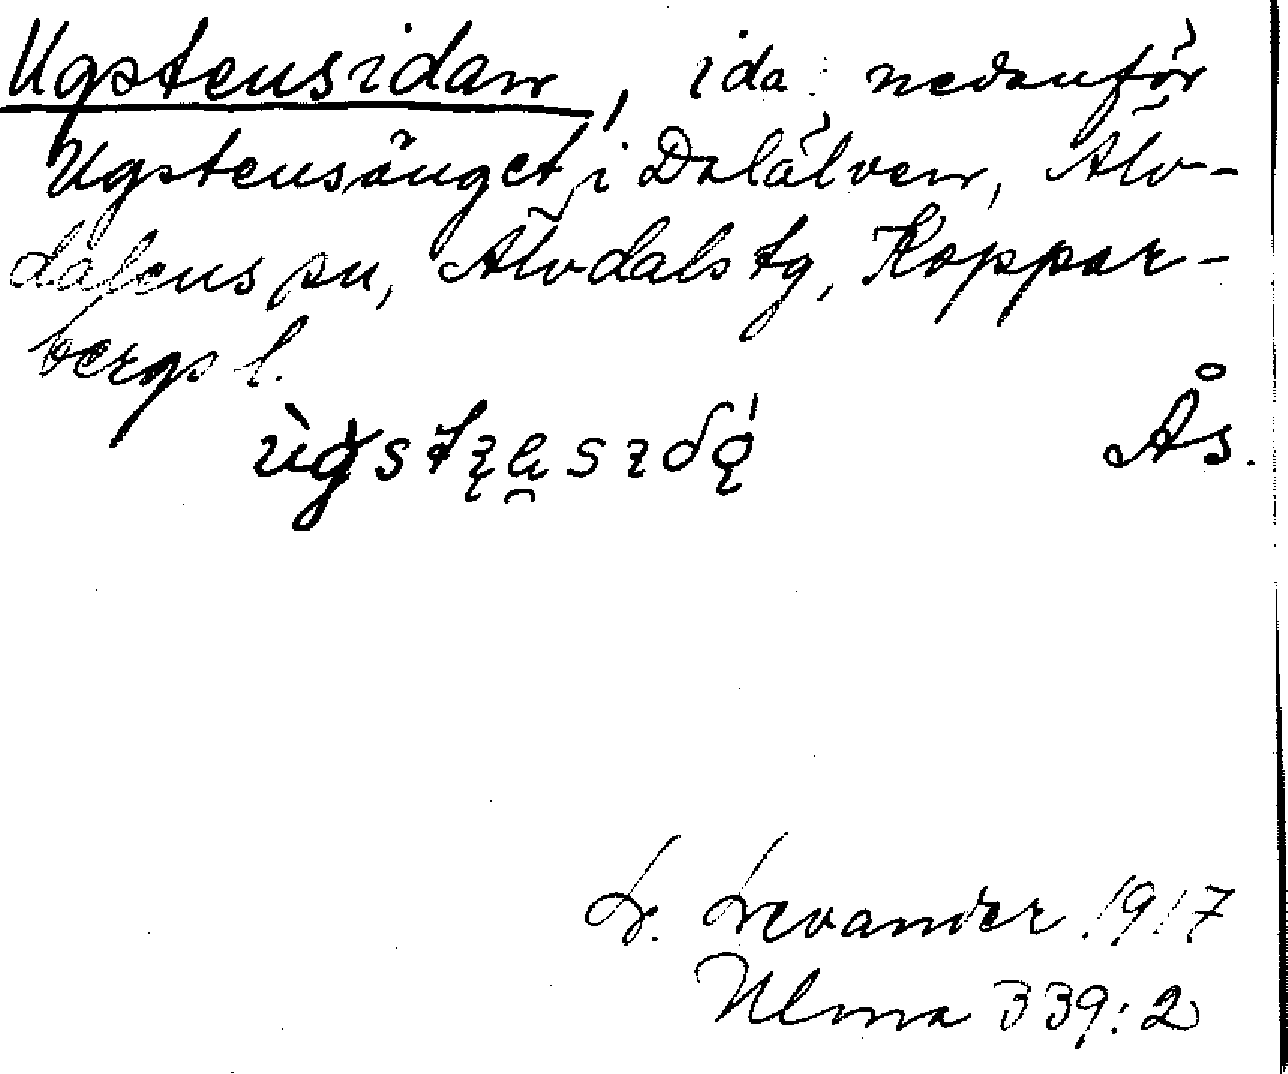 Ugstensidan, ida nedanför
Ugstensänget i Dalälven, Älv-
dalens sn, Älvdals tg, Koppar-
bergs l.
Ås.
L. Levander 1917
Ulma 339:2